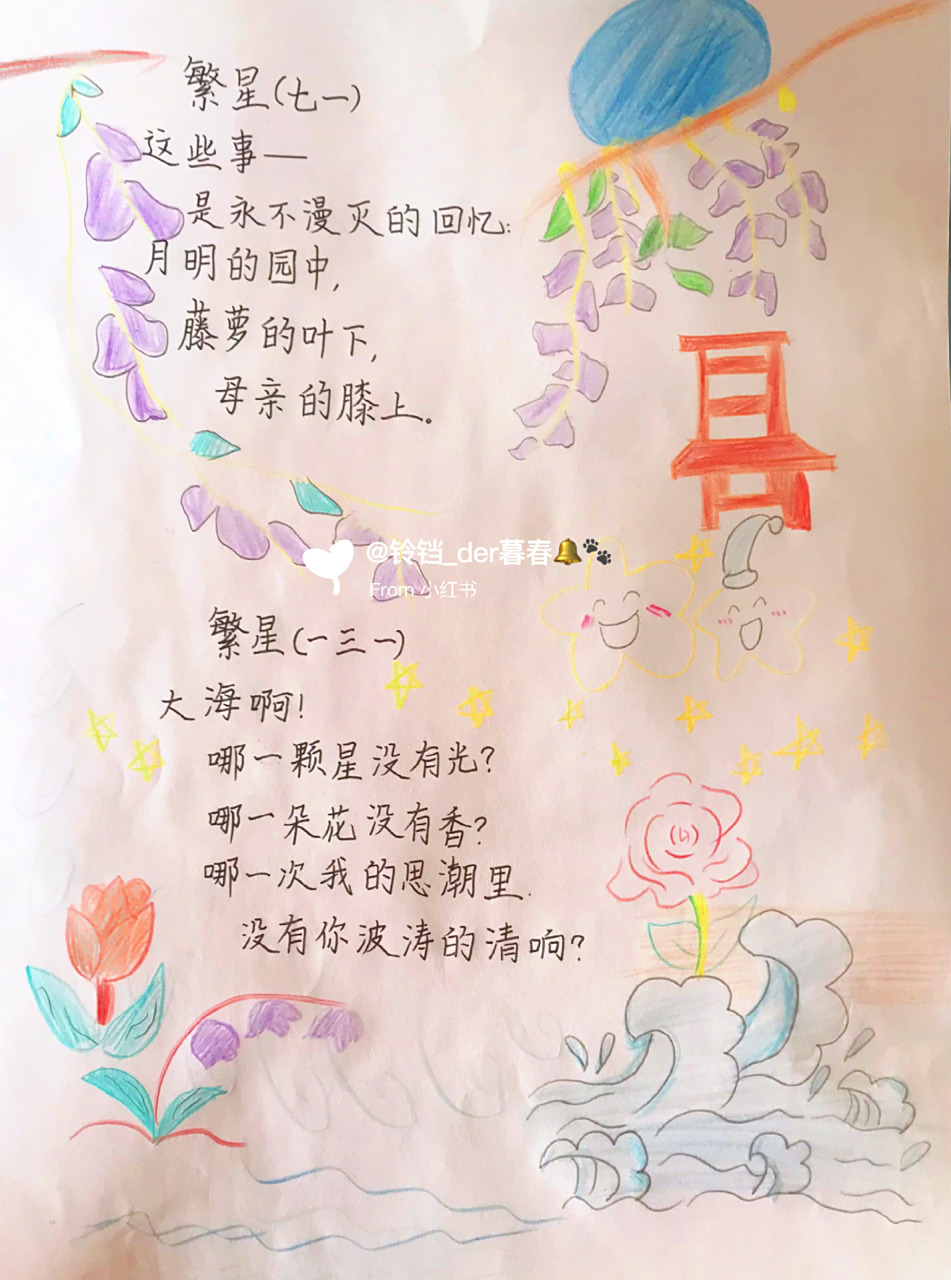 繁星(七一)
这些事—
是永不漫灭的回忆:
月明的园中,
藤萝的叶下,
母亲的膝上。
@铃铛_der暮春🔔🐾
From 小红书
繁星(一三一)
大海啊!
哪一颗星没有光?
哪一朵花没有香?
哪一次我的思潮里.
没有你波涛的清响?